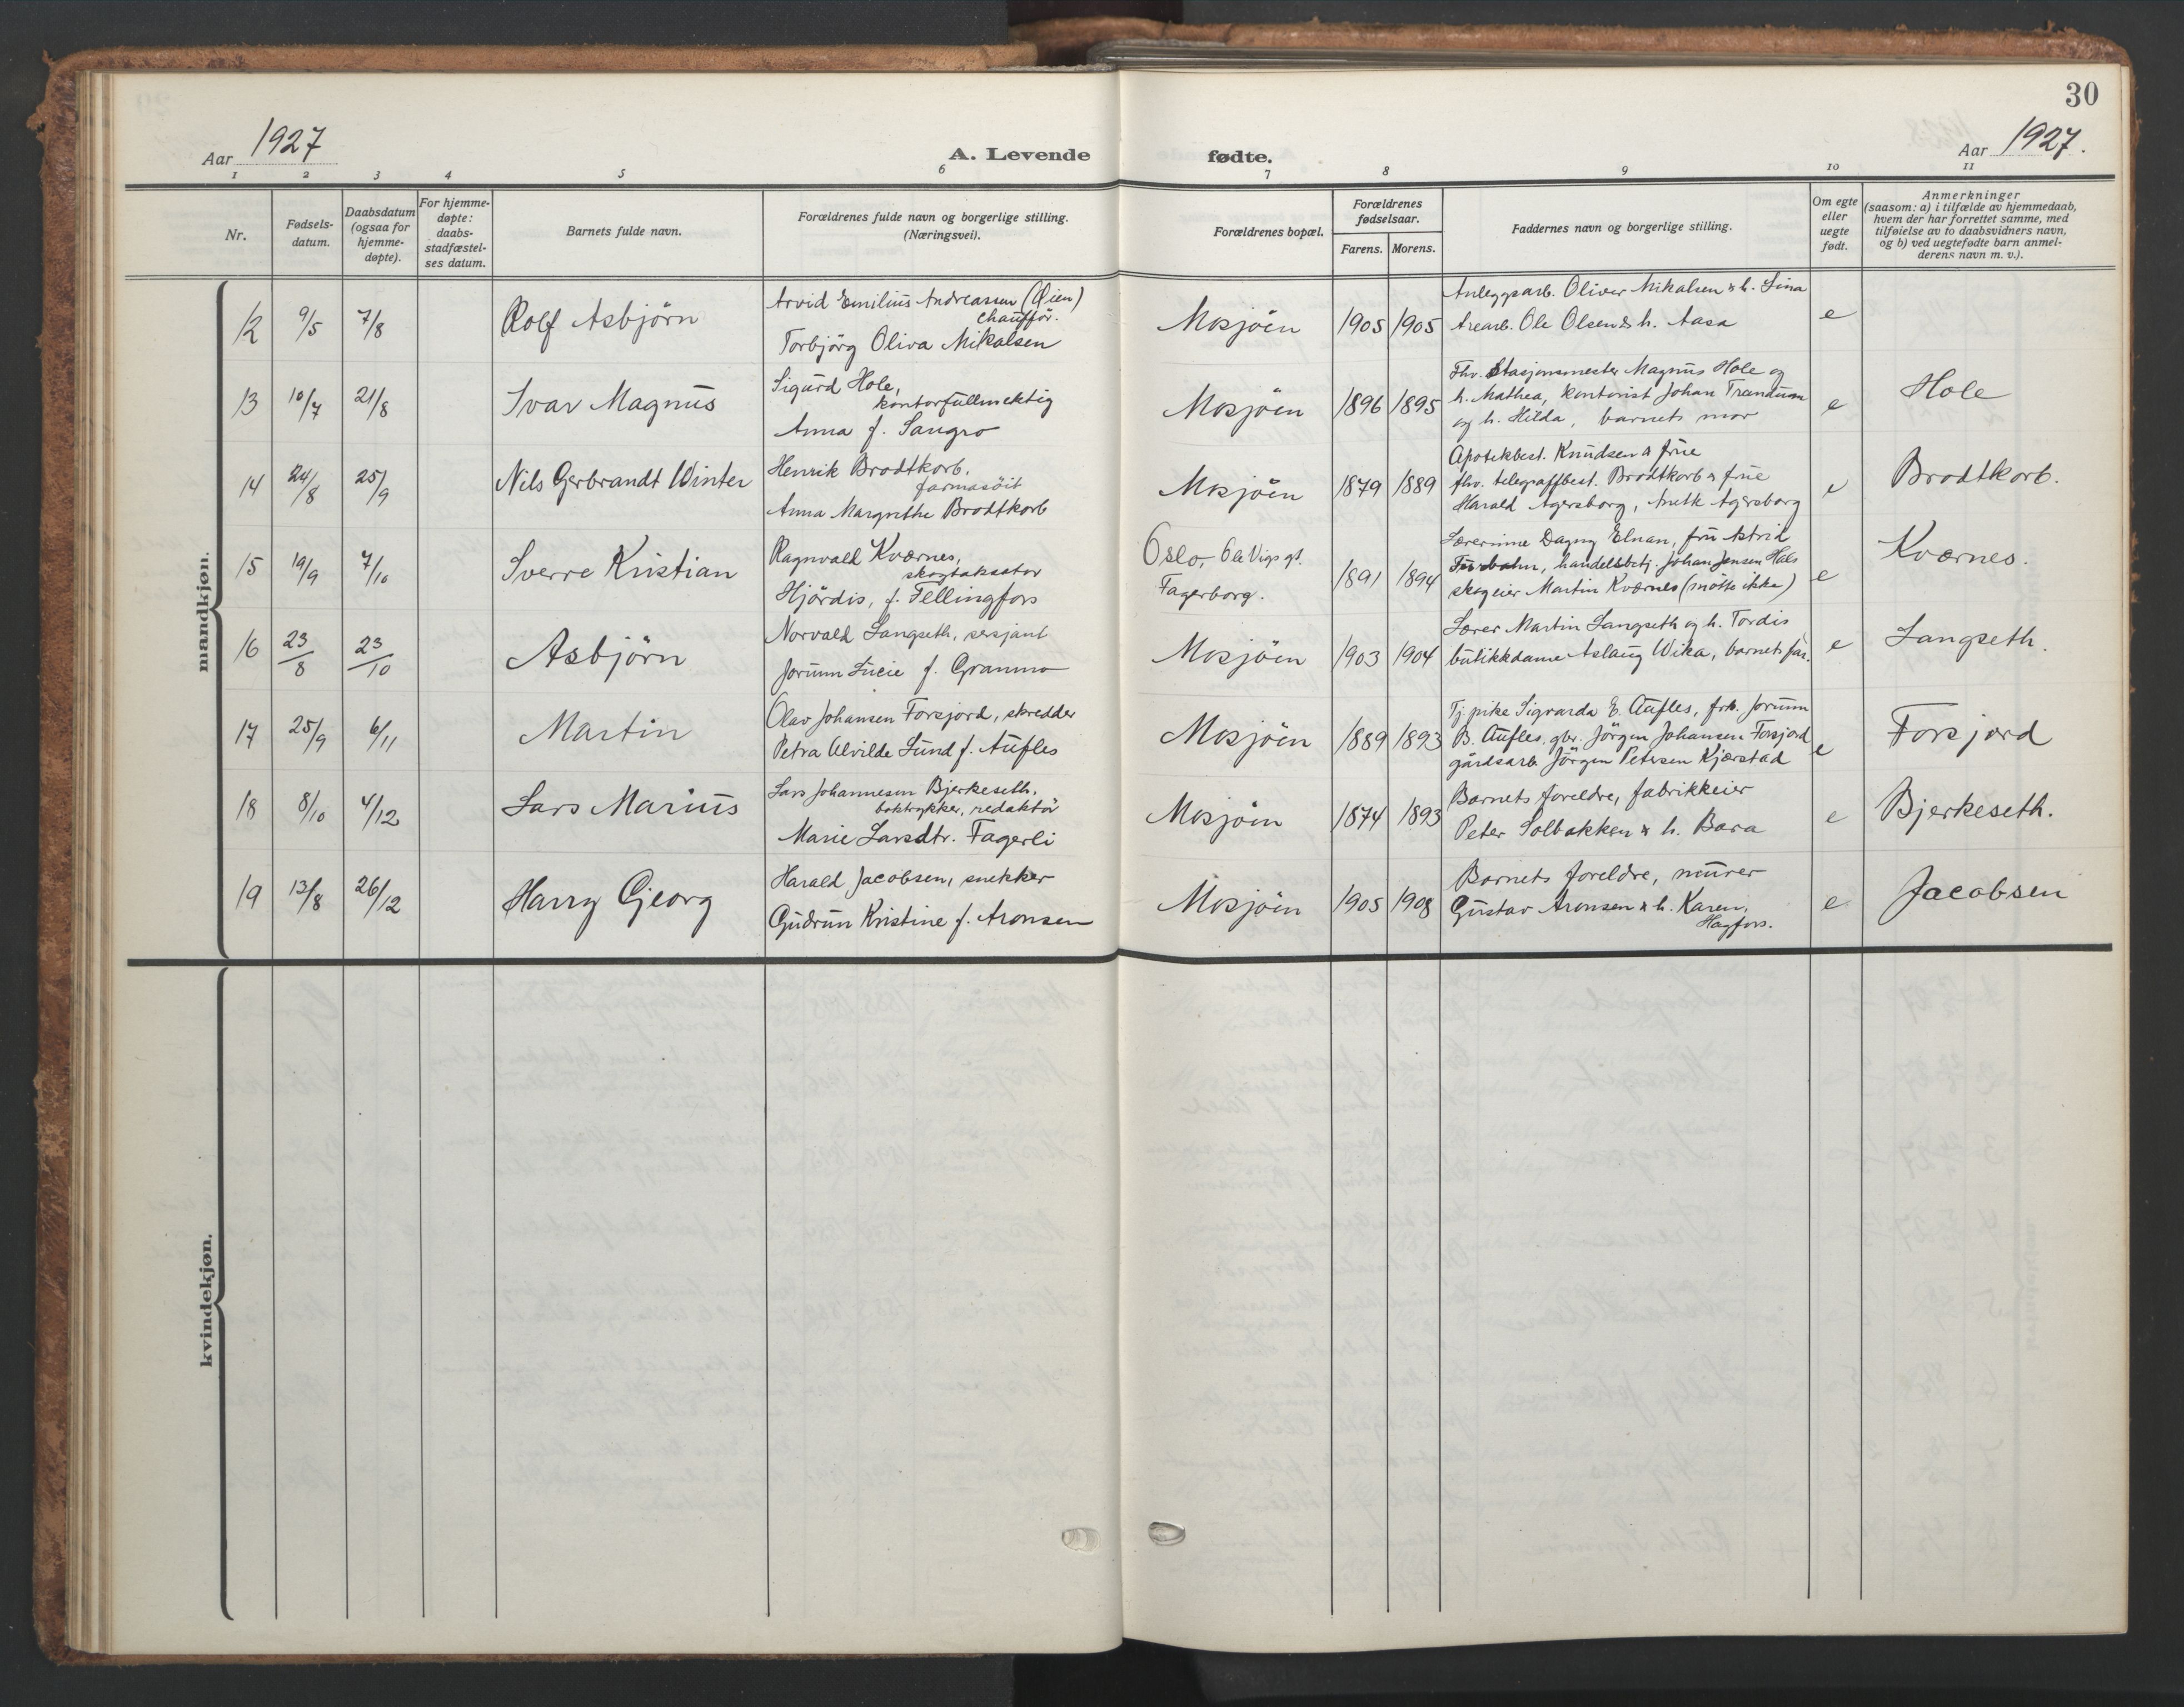 30
Aar 1927
A. Levende fødte.
Aar 1927.
1 2 3 4 5 6 7 8 9 10 11
Nr.
Fødsels-
datum.
Daabsdatum
(ogsaa for
hjemme-
døpte).
For hjemme-
døpte:
daabs-
stadfæstel-
ses datum.
Barnets fulde navn.
Forældrenes fulde navn og borgerlige stilling.
(Næringsvei).
Forældrenes bopæl.
Forældrenes
fødselsaar.
Farens. Morens.
Faddernes navn og borgerlige stilling.
Om egte
eller
uegte
født.
Anmerkninger
(saasom: a) i tilfælde av hjemmedaab,
hvem der har forrettet samme, med
tilføielse av to daabsvidners navn,
og b) ved uegtefødte barn anmel-
derens navn m. v.).
mandkjøn.
12 9/5 7/8 Rolf Asbjörn
Arvid Emilius Andreassen (Öien)
chaufför.
Torbjörg Oliva Mikalsen
Mosjöen 1905 1905
Anleggsarb. Oliver Mikalsen & h. Lina
Arearb. Ole Olsen & h. Aasa
e
13 10/7 21/8 Ivar Magnus
Sigurd Hole,
kontorfullmektig
Anna f. Sangro
Mosjöen 1896 1895
Fhv. Stasjonsmester Magnus Hole og
h. Mathea, kontorist Johan Trandum
og h. Hilda, barnets mor
e Hole
14 24/8 25/9 Nils Gerbrandt Winter
Henrik Brodtkorb.
farmasöit
Anna Margrethe Brodtkorb
Mosjöen 1879 1889
Apotekbest. Knudsen & frue
fhv. telegrafbest. Brodtkorb & frue
Harald Agersborg, Anetk Agersborg
e Brodtkorb.
15 19/9 7/10 Sverre Kristian
Ragnvald Kværnes,
skogtaksator
Hjördis, f. Fellingfors
Oslo, Ole Vigs gt.
Fagerborg.
1891 1894
Lærerinne Dagny Elnan, fru Astrid
handelsbetj. Johan Jensen Hals
skogeier Martin Kværnes (møtte ikke)
e Kværnes.
16 23/8 23/10 Asbjörn
Norvald Langseth, sersjant
Jorunn Lucie f. Granmo
Mosjöen 1903 1904
Lærer Martin Langseth og h. Tordis
butikkdame Aslaug Wika, barnets far.
e Langseth.
17 25/9 6/11 Martin
Olav Johansen Forsjord, skredder
Petra Alvilde Lund f. Aufles
Mosjöen 1889 1893
Tj.pike Sigvarda E. Aufles, frk. Jorunn
B. Aufles, gbr. Jörgen Johansen Forsjord
gårdsarb. Jörgen Petersen Kjærstad
e Forsjord
18 8/10 4/12 Lars Marius
Lars Johannesen Bjerkeseth,
boktrykker, redaktör
Marie Larsdtr. Fagerli
Mosjöen 1874 1893
Barnets foreldre, fabrikkeier
Peter Solbakken & h. Bara
e Bjerkeseth.
19 13/8 26/12 Harry Georg
Harald Jacobsen, snekker
Gudrun Kristine f. Aronsen
Mosjöen 1905 1908
Barnets foreldre, murer
Gustav Aronsen & h. Karen,
Hagfors.
e Jacobsen
kvindekjøn.